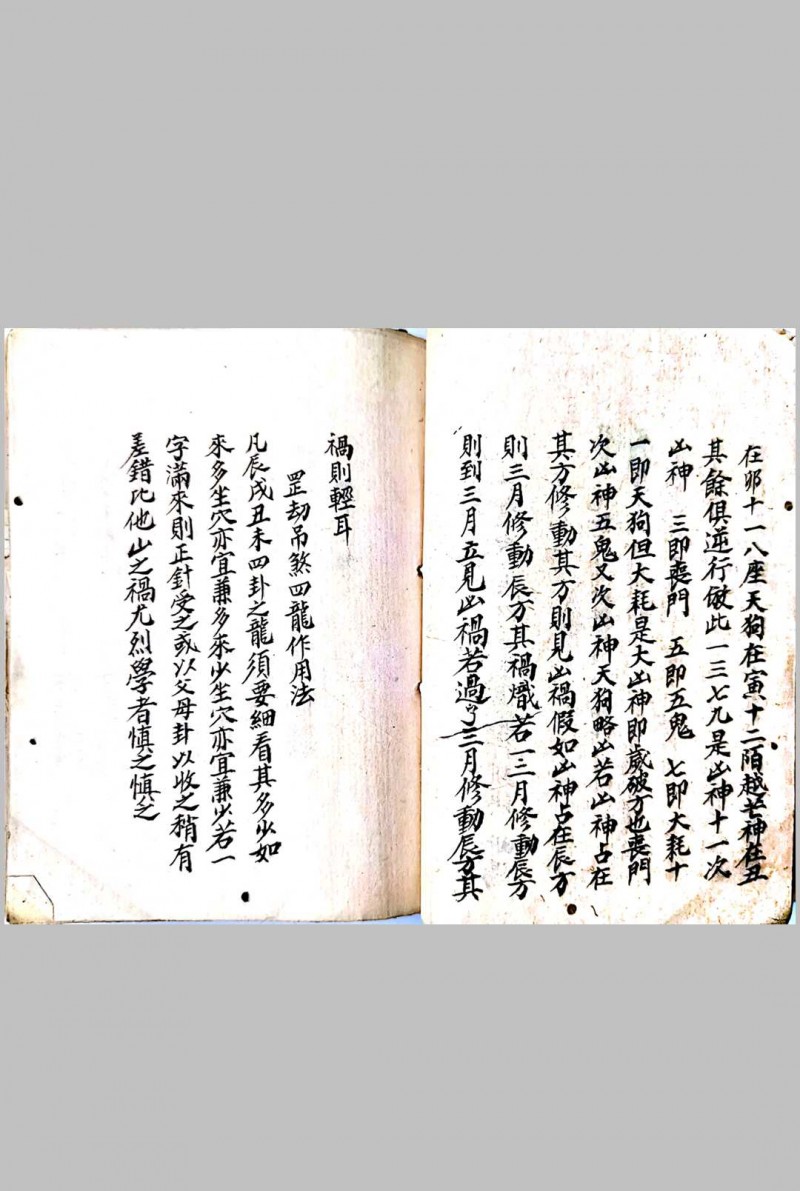 在卯十一八座天狗在寅十二陌越芒神在丑
其餘俱逆行倣此一三七九是凶神十一次
凶神　三即喪門　五即五鬼　七即大耗十
一即天狗但大耗是大凶神即歲破方也喪門
次凶神五鬼又次凶神天狗略凶若凶神占在
其方修動其方則見凶禍假如凶神占在辰方
則三月修動辰方其禍熾若一三月修動辰方
則到三月立見凶禍若過了三月修動辰方其
禍則輕耳
罡劫吊煞四龍作用法
凡辰戌丑未四卦之龍須要細看其多少如
來多坐穴亦宜兼多來少坐穴亦宜兼少若一
字滿來則正針受之或以父母卦以收之稍有
差錯比他山之禍尤烈學者慎之慎之